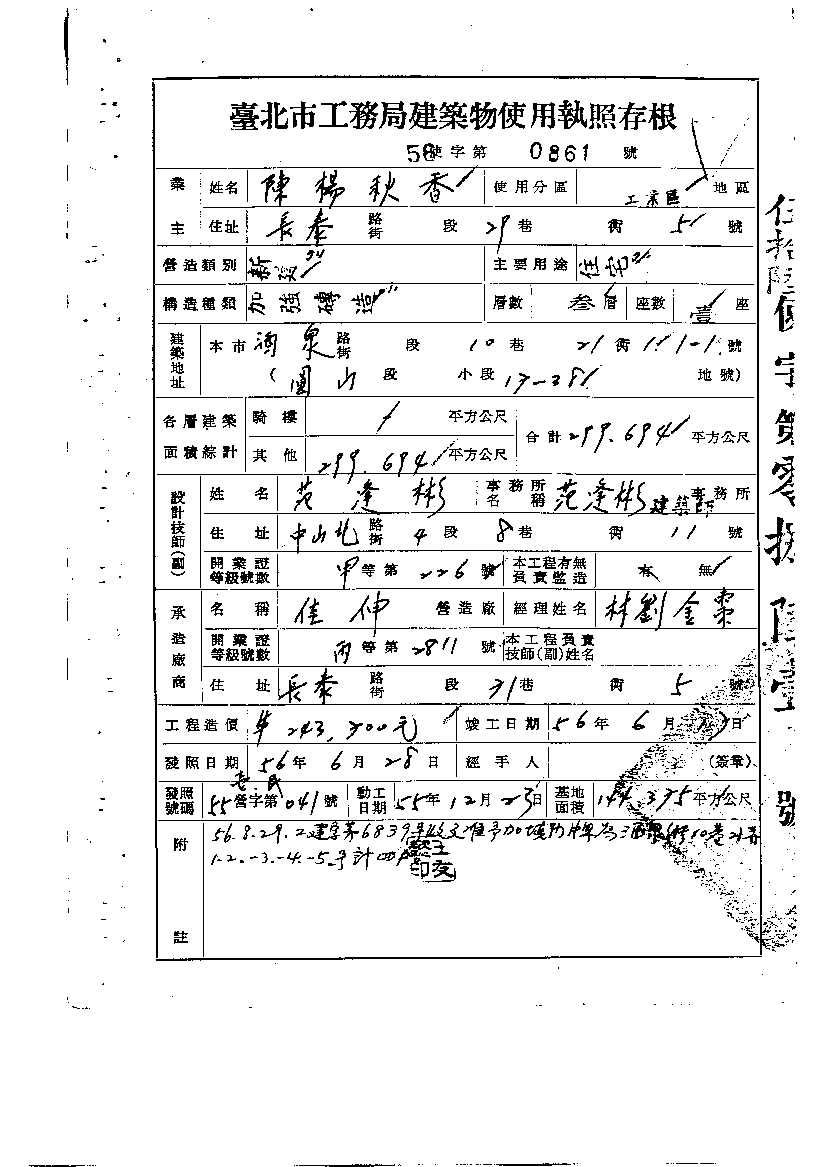 臺北市工務局建築物使用執照存根
56使字第 0861 號
業主 姓名 陳楊秋香 使用分區 工業區 地區
住址 長泰 路街 段 29巷 衖 5 號
營造類別 新建 主要用途 住宅
構造種類 加強磚造 層數 叁層 座數 壹座
建築地址 本市 酒泉 路街 段 10巷 21衖 1.1-1 號
(圓山段 小段 17-38 地號)
各層建築面積綜計 騎樓 平方公尺 合計 299.694 平方公尺
其他 299.694 平方公尺
設計技師(副) 姓名 范逢彬 事務所名稱 范逢彬建築師事務所
住址 中山北 路街 4段 8巷 衖 11 號
開業證等級號數 甲等第 226 號 本工程有無負責監造 有 無
承造廠商 名稱 佳伸 營造廠 經理姓名 林劉金棗
開業證等級號數 丙等第 2811 號 本工程負責技師(副)姓名
住址 長泰 路街 段 31巷 衖 5 號
工程造價 243,300元 竣工日期 56年 6月 日
發照日期 56年 6月 28日 經手人 (簽章)
發照號碼 55營字第 041 號 動工日期 55年 12月 23日 基地面積 144.375 平方公尺
附註 56.8.29.2建字第6839號收文准予加
1-2.-3.-4.-5.號計四
伍拾陸使字第零捌陸壹號